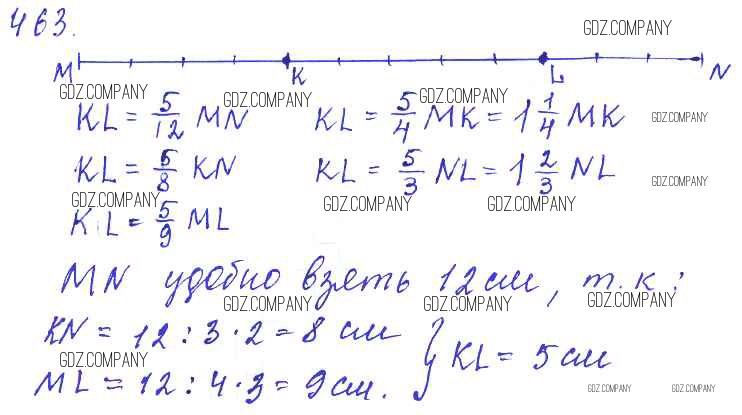 463.
GDZ.COMPANY
M K L N
GDZ.COMPANY GDZ.COMPANY GDZ.COMPANY
KL = 5/12 MN KL = 5/4 MK = 1 1/4 MK GDZ.COMPANY
KL = 5/8 KN KL = 5/3 NL = 1 2/3 NL GDZ.COMPANY
GDZ.COMPANY GDZ.COMPANY GDZ.COMPANY
KL = 5/9 ML
MN удобно взять 12 см, т.к:
GDZ.COMPANY GDZ.COMPANY GDZ.COMPANY
KN = 12 : 3 · 2 = 8 см
GDZ.COMPANY } KL = 5 см
ML = 12 : 4 · 3 = 9 см.
GDZ.COMPANY GDZ.COMPANY